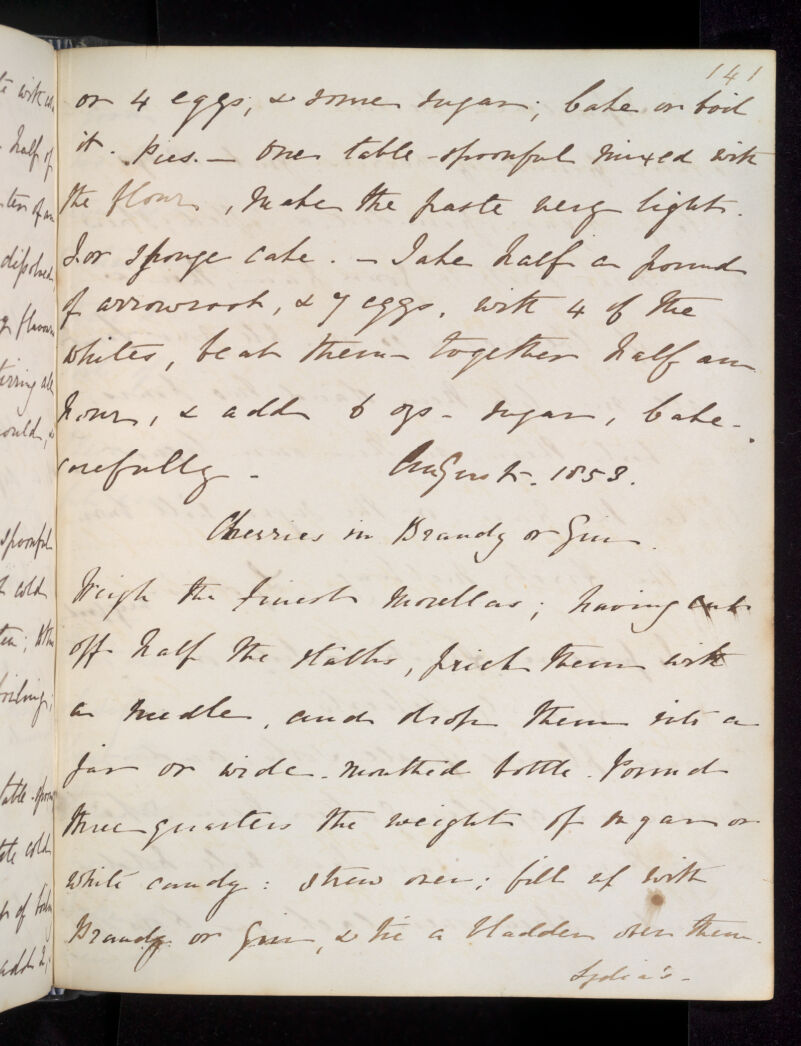 141
or 4 eggs, & some sugar; bake or boil
it. Pies. — One table-spoonful mixed with
the flour, makes the paste very light.
For Sponge cake. — Take half a pound
of arrowroot, & 7 eggs, with 4 of the
whites, beat them together half an
hour, & add 6 ozs. sugar, bake
carefully. August. 1853.
Cherries in Brandy or Gin.
Weigh the finest Morellas; having cut
off half the stalks, prick them with
a needle, and drop them into a
jar or wide-mouthed bottle. Pound
three quarters the weight of sugar or
white candy: strew over; fill up with
Brandy or Gin, & tie a bladder over them.
Lydia's.
te with
half of
dissolved,
spoonful
cold
boiling;
table-spoon
cold